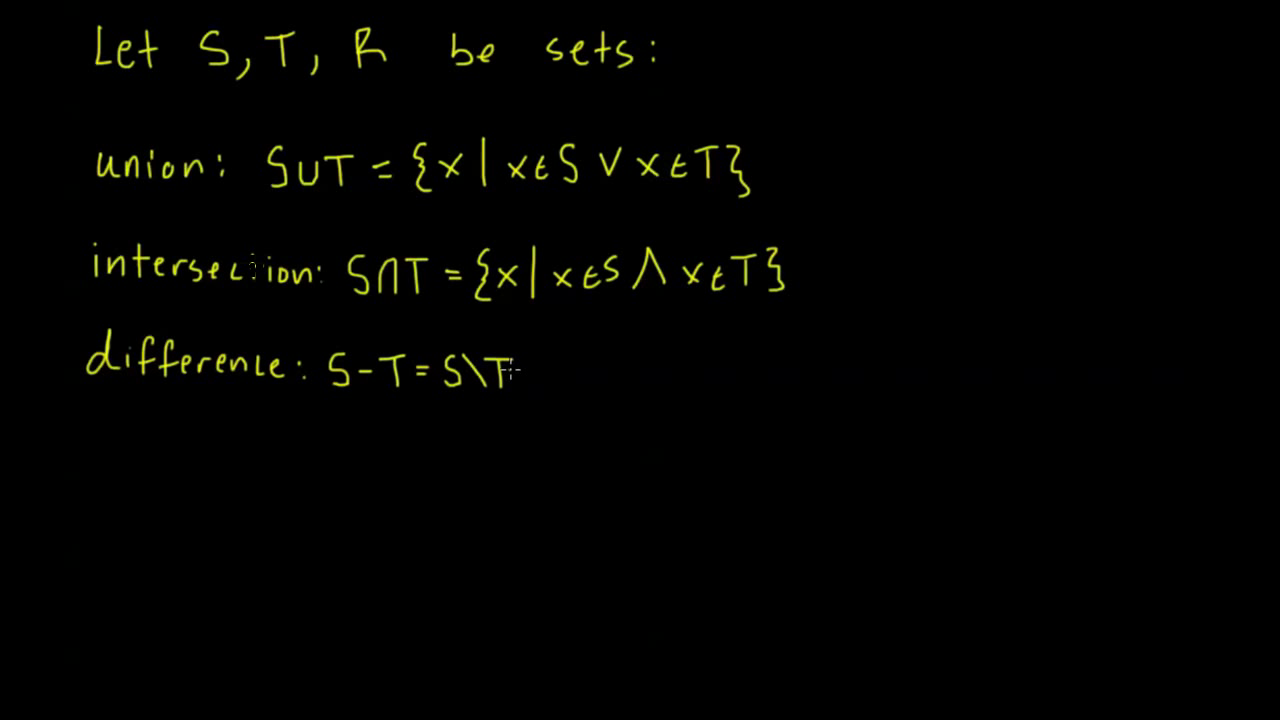 Let S, T, R be sets:
union: S∪T = {x | x∈S ∨ x∈T}
intersection: S∩T = {x | x∈S ∧ x∈T}
difference: S-T = S\T